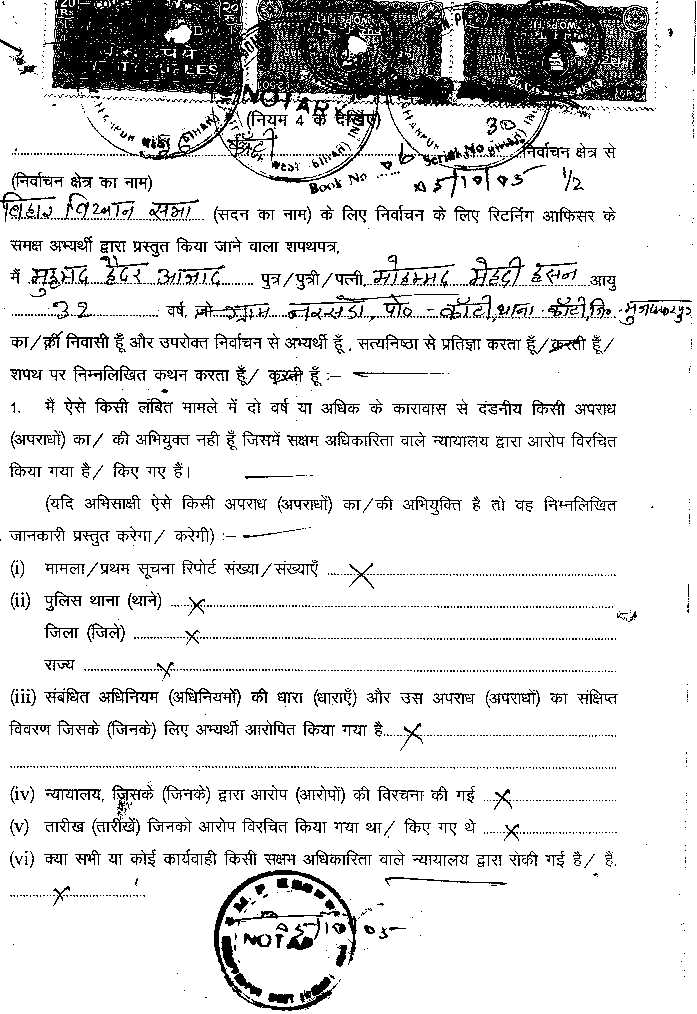 NOTARY
(नियम 4 के देखिए)
काँटी निर्वाचन क्षेत्र से
Book No 06 Serial No 30
05/10/05 1/2
(निर्वाचन क्षेत्र का नाम)
बिहार विधान सभा (सदन का नाम) के लिए निर्वाचन के लिए रिटर्निंग आफिसर के
समक्ष अभ्यर्थी द्वारा प्रस्तुत किया जाने वाला शपथपत्र,
मैं मुहम्मद हैदर आजाद पुत्र/पुत्री/पत्नी, मोहम्मद मेहदी हसन आयु
32 वर्ष, जो ग्राम नरसंडा, पो० - काँटी, थाना - काँटी, जि० - मुजफ्फरपुर
का/की निवासी हूँ और उपरोक्त निर्वाचन से अभ्यर्थी हूँ, सत्यनिष्ठा से प्रतिज्ञा करता हूँ/करती हूँ/
शपथ पर निम्नलिखित कथन करता हूँ/ करती हूँ :-
1. मैं ऐसे किसी लंबित मामले में दो वर्ष या अधिक के कारावास से दंडनीय किसी अपराध
(अपराधों) का/ की अभियुक्त नही हूँ जिसमें सक्षम अधिकारिता वाले न्यायालय द्वारा आरोप विरचित
किया गया है/ किए गए हैं।
(यदि अभिसाक्षी ऐसे किसी अपराध (अपराधों) का/की अभियुक्ति है तो वह निम्नलिखित
जानकारी प्रस्तुत करेगा/ करेगी) :-
(i) मामला/प्रथम सूचना रिपोर्ट संख्या/संख्याएँ X
(ii) पुलिस थाना (थाने) X
जिला (जिले) X
राज्य X
(iii) संबंधित अधिनियम (अधिनियमों) की धारा (धाराएँ) और उस अपराध (अपराधों) का संक्षिप्त
विवरण जिसके (जिनके) लिए अभ्यर्थी आरोपित किया गया है X
(iv) न्यायालय, जिसके (जिनके) द्वारा आरोप (आरोपों) की विरचना की गई X
(v) तारीख (तारीखें) जिनको आरोप विरचित किया गया था/ किए गए थे X
(vi) क्या सभी या कोई कार्यवाही किसी सक्षम अधिकारिता वाले न्यायालय द्वारा रोकी गई है/ हैं.
X
05/10/05
NOTARY